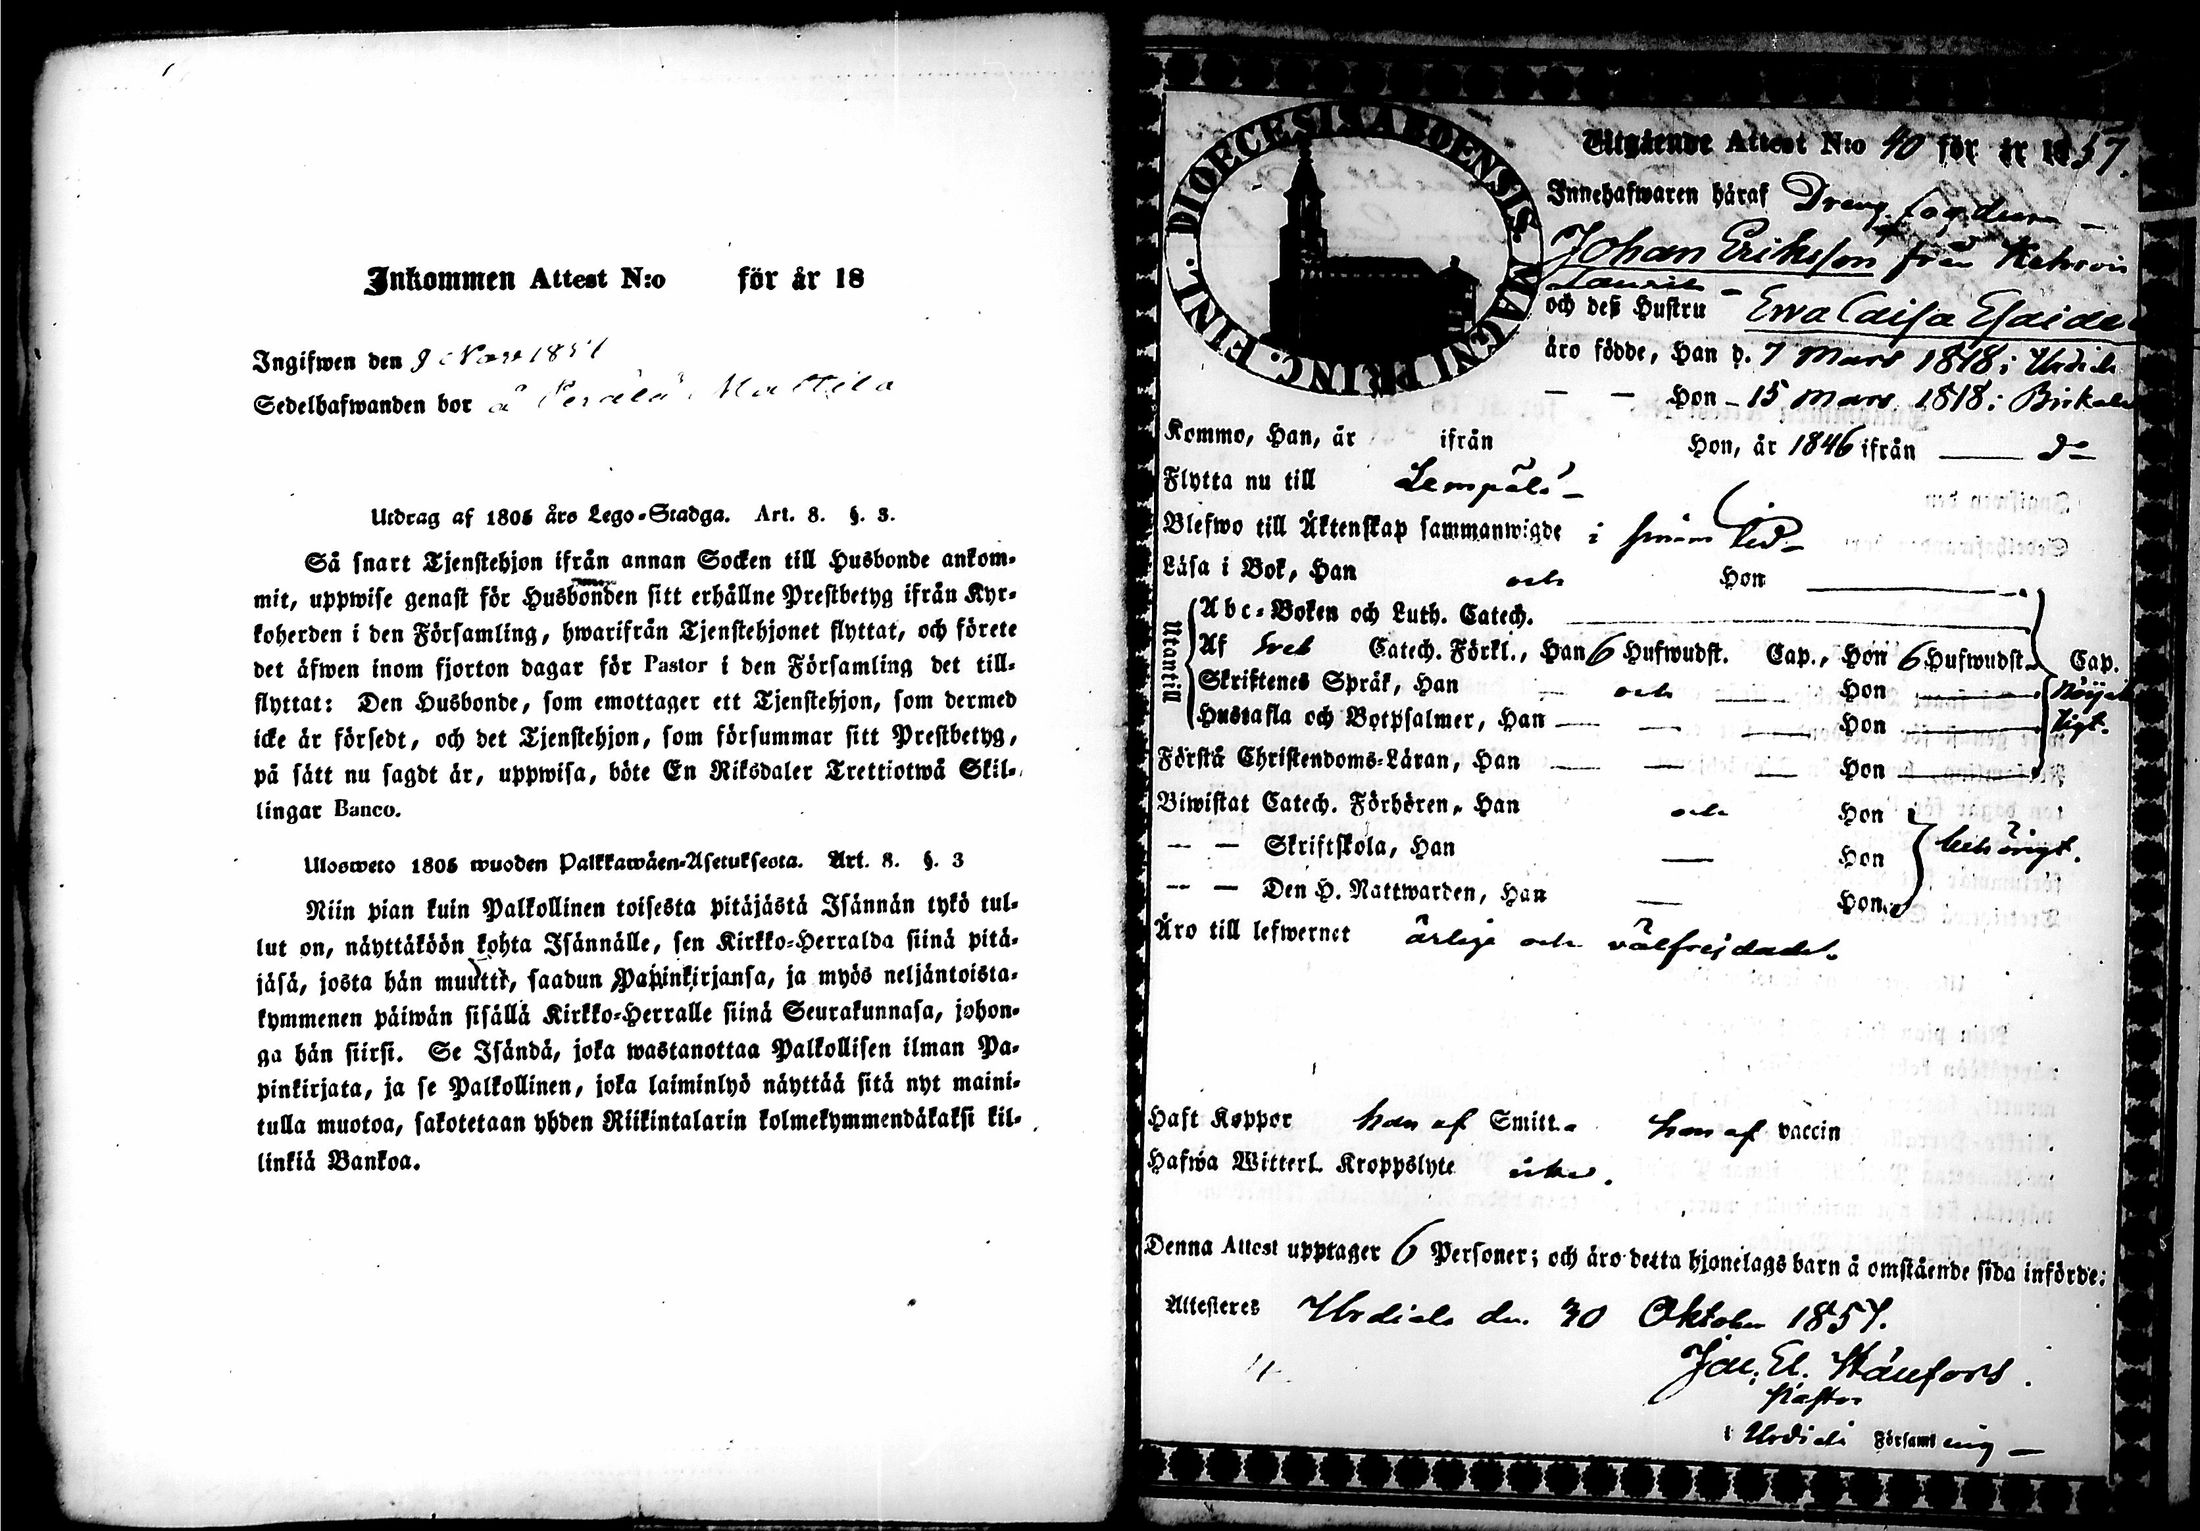 Inkommen Attest N:o för år 18
Ingifwen den 9 Nov 1857
Sedelhafwanden bor å Perälä Mattila
Utdrag af 1805 års Lego-Stadga. Art. 8. §. 3.
Så snart Tjenstehjon ifrån annan Socken till Husbonde ankom-
mit, uppwise genast för Husbonden sitt erhållne Prestbetyg ifrån Kyr-
koherden i den Församling, hwarifrån Tjenstehjonet flyttat, och förete
det äfwen inom fjorton dagar för Pastor i den Församling det till-
flyttat: Den Husbonde, som emottager ett Tjenstehjon, som dermed
icke är försedt, och det Tjenstehjon, som försummar sitt Prestbetyg,
på sätt nu sagdt är, uppwisa, böte En Riksdaler Trettiotwå Skil-
lingar Banco.
Ulosweto 1805 wuoden Palkkawäen-Asetuksesta. Art. 8. §. 3
Niin pian kuin Palkollinen toisesta pitäjästä Isännän tykö tul-
lut on, näyttäköön kohta Isännälle, sen Kirkko-Herralda siinä pitä-
jäsä, josta hän muutti, saadun Papinkirjansa, ja myös neljäntoista-
kymmenen päiwän sisällä Kirkko-Herralle siinä Seurakunnasa, johon-
ga hän siirsi. Se Isändä, joka wastanottaa Palkollisen ilman Pa-
pinkirjata, ja se Palkollinen, joka laiminlyö näyttää sitä nyt maini-
tulla muotoa, sakotetaan yhden Riikintalarin kolmekymmendäkaksi kil-
linkiä Bankoa.
DIOECESIS ABOENSIS. MAGNI PRINC. FINL.
Utgående Attest N:o 40 för år 1857.
Innehafwaren häraf Dreng
Johan Eriksson från
och deß Hustru Ewa Caisa Esaidr
äro födde, Han d. 7 Mars 1818 i Urdiala
— — Hon - 15 Mars 1818 i Birkala
Kommo, Han, år ifrån Hon, år 1846 ifrån — do
Flytta nu till Lempälä
Blefwo till Äktenskap sammanwigde i sinom tid
Läsa i Bok, Han och Hon
Utantill
Abc-Boken och Luth. Catech.
Af Sveb Catech. Förkl., Han 6 Hufwudst. Cap., Hon 6 Hufwudst. Cap.
Skriftenes Språk, Han — och — Hon — Nöjak
Hustafla och Botpsalmer, Han — — — Hon — ligt.
Första Christendoms-Läran, Han — — — Hon —
Biwistat Catech. Förhören, Han och Hon
— — Skriftskola, Han — Hon behörigt.
— — Den H. Nattwarden, Han — Hon
Äro till lefwernet ärlige och välfrejdade.
Haft Koppor han af Smitt. hon af vaccin
Hafwa Witterl. Kroppslyte icke.
Denna Attest upptager 6 Personer; och äro detta hjonelags barn å omstående sida införde:
Attesteres Urdiala den 30 Oktober 1857.
Pastor
i Urdiala Församling